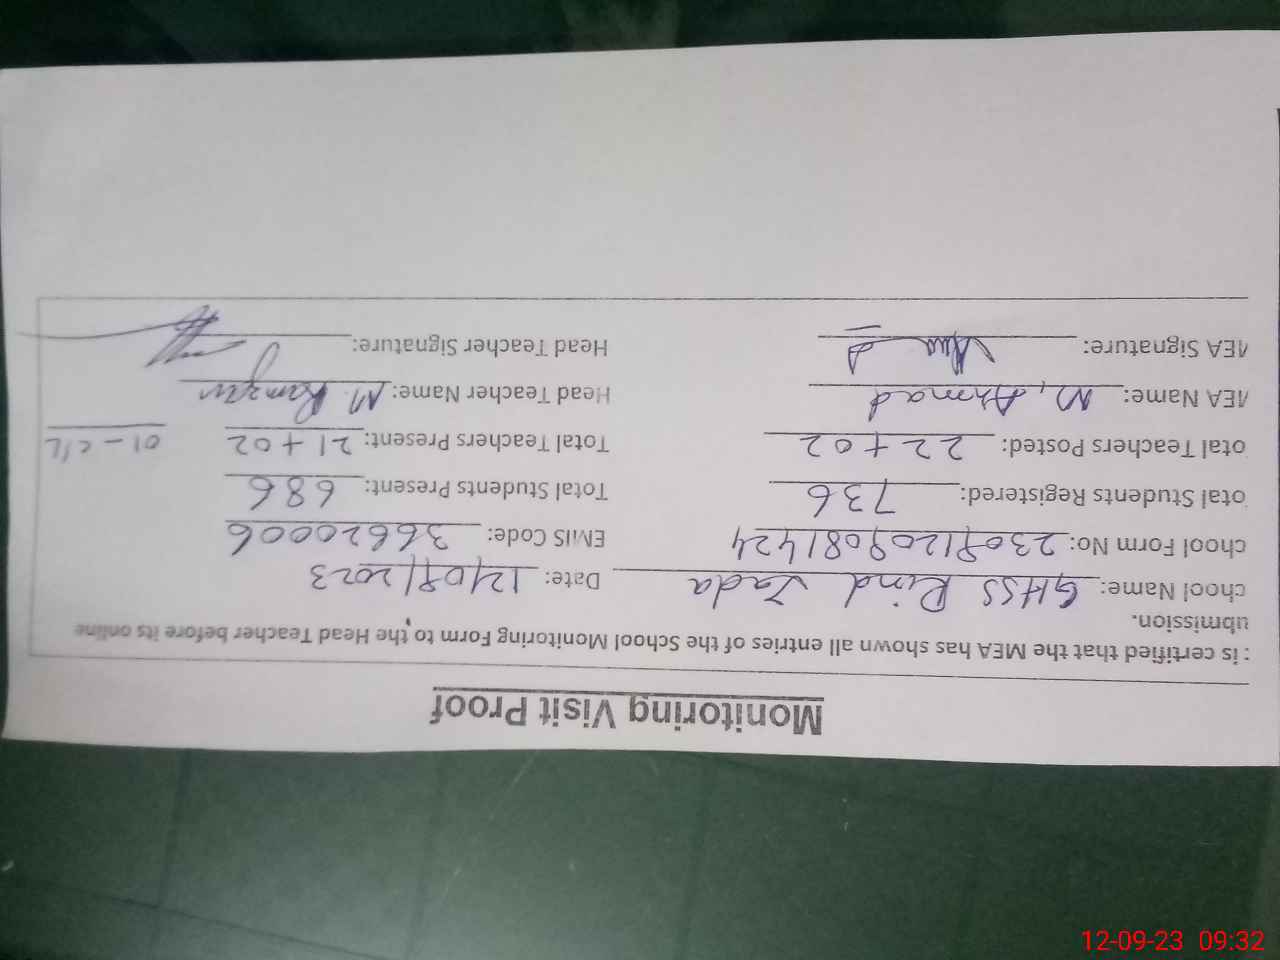 Monitoring Visit Proof
: is certified that the MEA has shown all entries of the School Monitoring Form to the Head Teacher before its online
ubmission.
chool Name: GHSS Rind Jada Date: 12/09/2023
chool Form No: 23091209081424 EMIS Code: 36620006
otal Students Registered: 736 Total Students Present: 686
otal Teachers Posted: 22+02 Total Teachers Present: 21+02 01-C/L
MEA Name: M, Ahmad Head Teacher Name: M. Ramzan
MEA Signature: Head Teacher Signature:
12-09-23 09:32